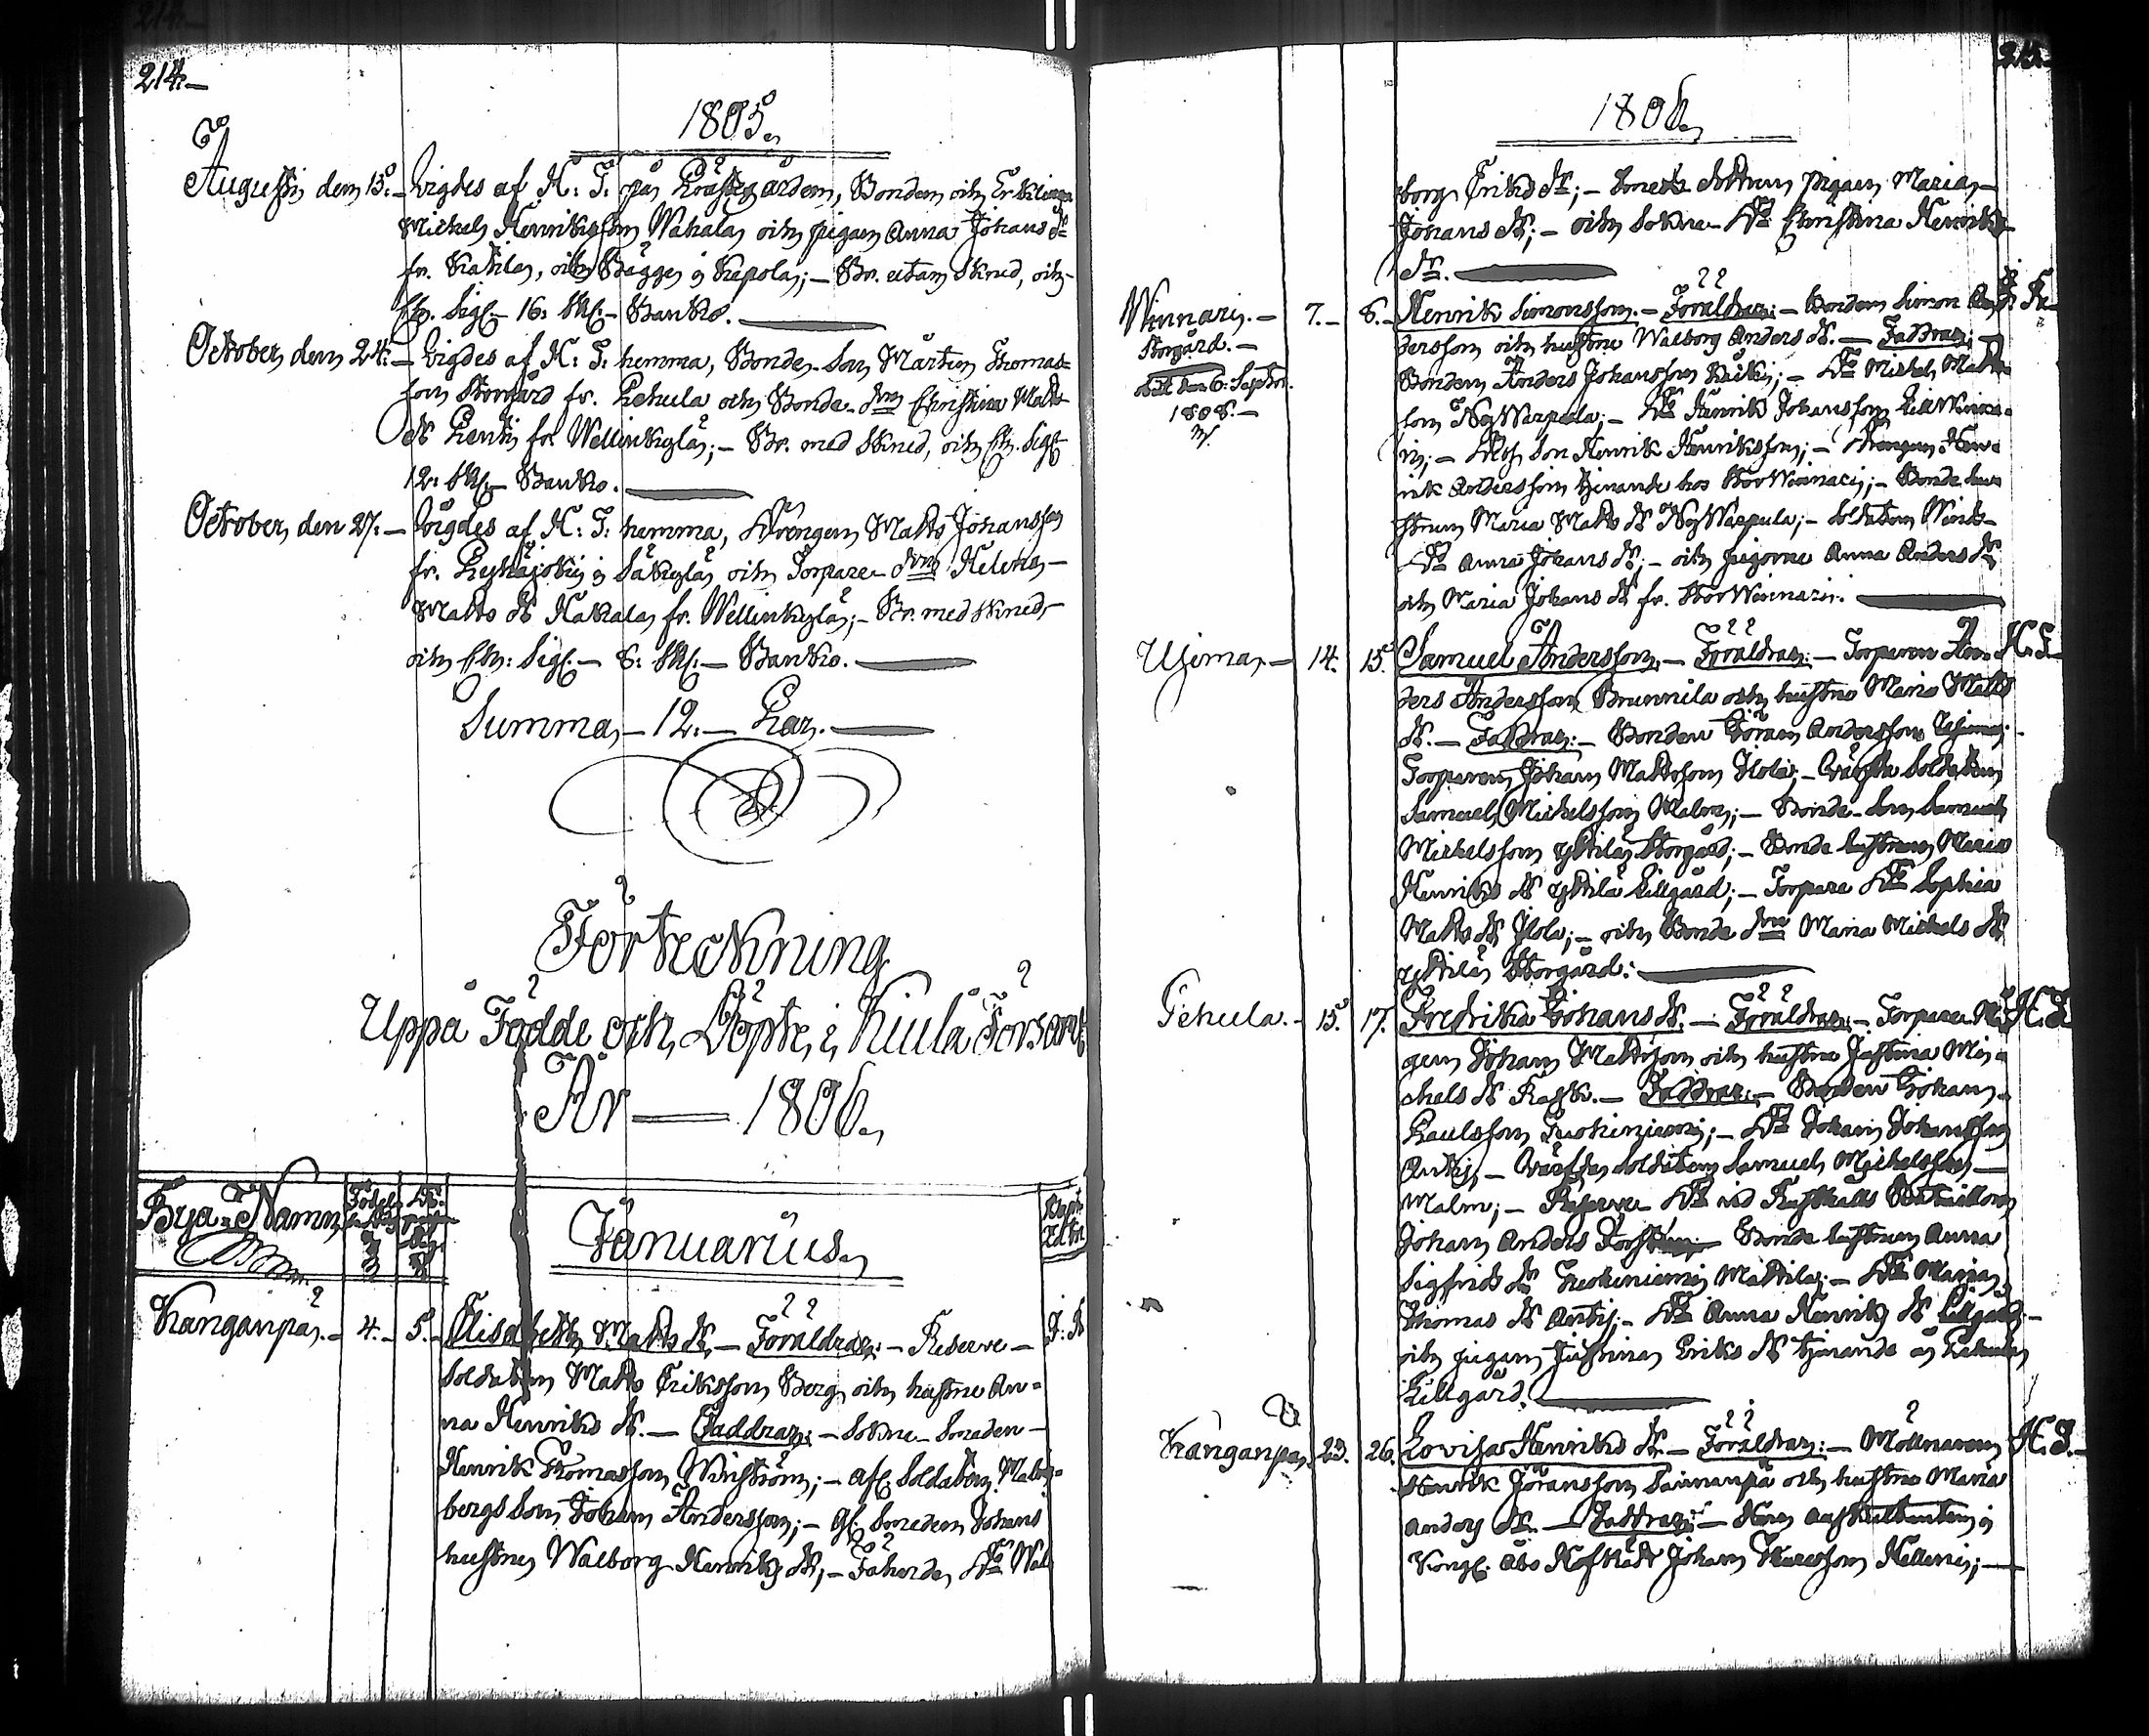 214.
1805.
Augusti den 15. Vigdes af H: T: på Prästegården, Bonden och Enklingen
Michel Henriksson Wahala och pigan Anna Johans dr
fr. Kakila, och Bägge i Kepola; — Br. utan Skrud, och
Ch. Sigl. 16: Skl. Banko.
October den 24. Vigdes af H: T: hemma, Bonde-Son Mårten Thomas
son Storgård fr. Pehula och Bonde-drn Christina Matts
dr Pentti fr. Wellinkylä; — Br. med Skrud, och Ch. Sigl.
12: Skl. Banko.
October den 27. — Vigdes af H: T: hemma, Drengen Matts Johansson
fr. Pyhäjoki i Säkylä och Torpare-drn Helena
Matts dr Kakala fr. Wellinkylä; — Br. med Skrud,
och Ch: Sigl. — 8: Skl. — Banko.
Summa — 12. — Par.
Förteckning
Uppå Födde och Döpte i Kiula Församl
År — 1806.
Bya-Namn
Januarius.
Kanganpä. — 4. — 5. — Elisabeth Matts dr. — Föräldrar: — Reserve — J: R
Soldaten Matts Eriksson Berg och hustru An-
na Henriks dr. — Faddrar: — Sokne-Smeden —
Henrik Thomasson Winström; — afl. Soldaten Malm-
bergs Son Johan Andersson; — gl. Smeden Johans
hustru Walborg Henriks dr; — Wal
1806.
borg Eriks dr; — pigan Maria
Johans dr; — och Sokne- Christina Henriks
dr.
Winnari. — 7. — 8. — Henrik Simonsson. — Föräldrar: — Bonden Simon An-
Storgård. —
dersson och hustru Walborg Anders dr. — Faddrar:
död den 6: Septbr.
1808. —
Bonden Anders Johansson Heiki; — Michel Matts
son NyWarpula; — Henrik Johansson LillWinna-
ri; — Son Henrik Henriksson; — Drengen Hen-
rik Andersson tjenande hos StorWinnari; — Bonde hu-
strun Maria Matts dr NyWarpula; — Soldaten Winds
Anna Johans dr; — och pigorne Anna Anders dr
och Maria Johans dr fr. StorWinnari.
Ujima — 14. 15. Samuel Andersson. — Föräldrar: — Torparen An- H. T.
ders Andersson Brunnila och hustru Maria Matts
dr. — Faddrar: — Bonden Göran Andersson Ujima;
Torparen Johan Mattsson Ilola; — Soldaten
Samuel Michelsson Malm; — Bonde-Son Samuel
Michelsson Yttilä Storgård; — Bonde hustrun Maria
Henriks dr Yttilä Lillgård; — Torpare Sophia
Matts dr Ilola; — och Bonde drn Maria Michels dr
Yttilä Storgård.
Pehula. — 15. 17. Fredrika Johans dr. — Föräldrar: — Torpare H. T.
gen Johan Mattsson och hustru Justina Mi-
chels dr Rask. — Faddrar: — Bonden Johan
Paulsson Tuohiniemi; — Johan Johansson
Antti; — Soldaten Samuel Michelsson
Malm; — Reserve vid Rusthålls Bataillon
Johan Anders Bonde hustrun Anna
Sigfrids dr Tuohiniemi Mattila; — Maria
Thomas dr Antti; — Anna Henriks dr Lillgård; —
och pigan Justina Eriks dr tjenande å Pehula
Lillgård.
Kanganpä. 23. 26. Lovisa Henriks dr. — Föräldrar: — Mölnaren H. T.
Henrik Göransson Sainanpä och hustru Maria
Anders dr. — Faddrar: — Herr Auskultanten i
Kongl. Åbo Hofrätt Johan Thuresson Hellenius; —